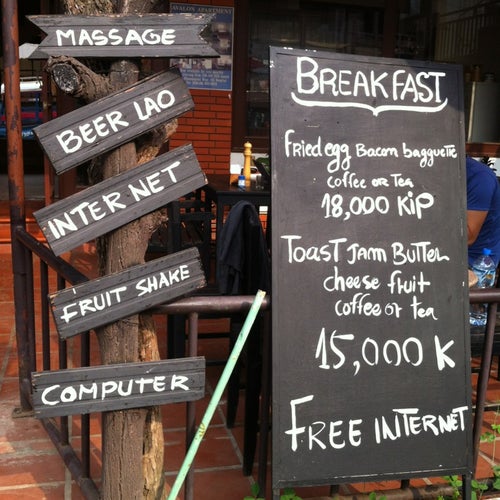 MASSAGE
BEER LAO
INTERNET
FRUIT SHAKE
COMPUTER
AVALON APARTMENT
BREAKFAST
Fried egg Bacon bagguette
coffee or Tea
18,000 KIP
TOAST Jam Butter
cheese fruit
coffee or tea
15,000 K
FREE INTERNET